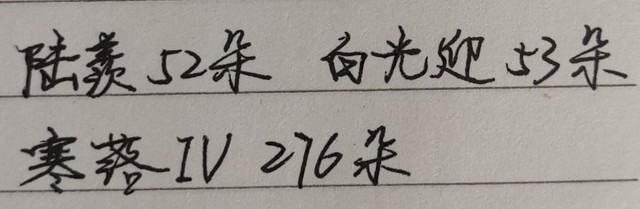 陆羡52朵 白光迎53朵
寒落IV 276朵